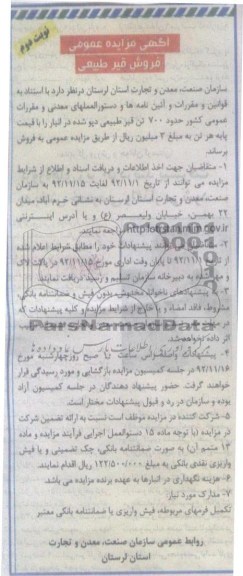 نوبت دوم
آگهی مزایده عمومی
فروش قیر طبیعی
سازمان صنعت، معدن و تجارت استان لرستان درنظر دارد با استناد به
قوانین و مقررات و آئین نامه ها و دستورالعملهای معدنی و مقررات
عمومی کشور حدود ۷۰۰ تن قیر طبیعی دپو شده در انبار را با قیمت
پایه هر تن به مبلغ ۳ میلیون ریال از طریق مزایده عمومی به فروش
برساند.
۱- متقاضیان جهت اخذ اطلاعات و دریافت اسناد و اطلاع از شرایط
مزایده می توانند از تاریخ ۹۲/۱۱/۱ لغایت ۹۲/۱۱/۱۵ به سازمان
صنعت، معدن و تجارت استان لرستان به نشانی خرم آباد میدان
۲۲ بهمن، خیابان ولیعصر (ع) و یا آدرس اینترنتی
مراجعه نمایند.
پیشنهادات خود را مطابق شرایط اعلام شده
تا پایان وقت اداری مورخ ۹۲/۱۱/۱۵ در پاکت لاک
و مهر شده به دبیرخانه سازمان تسلیم و رسید دریافت نمایند
۳- پیشنهادهای ناخوانا، مخدوش، بدون فیش و ضمانتنامه بانکی،
مشروط، فاقد امضاء و یا خارج از شرایط مزایده و کلیه پیشنهادات که
اثر داده نخواهد شد.
۴- پیشنهادات واصله رأس ساعت ۱۰ صبح روز چهارشنبه مورخ
۹۲/۱۱/۱۶ در جلسه کمیسیون مزایده بازگشایی و مورد رسیدگی قرار
خواهند گرفت. حضور پیشنهاد دهندگان در جلسه کمیسیون آزاد
بوده و سازمان در رد و قبول پیشنهادات مختار است.
۵- شرکت کننده در مزایده موظف است نسبت به ارائه تضمین شرکت
در مزایده (با توجه ماده ۱۵ دستوالعمل اجرایی فرآیند مزایده و ماده
۱۳ متمم آن) به صورت ضمانتنامه بانکی، چک تضمینی و یا فیش
واریزی نقدی بانکی به مبلغ ۱۲۲/۵۰۰/۰۰۰ ریال اقدام نمایند.
۶- هزینه نگهداری در انبارها به عهده برنده مزایده می باشد.
۷- مدارک مورد نیاز:
تکمیل فرمهای مربوطه، فیش واریزی یا ضمانتنامه بانکی معتبر
روابط عمومی سازمان صنعت، معدن و تجارت
استان لرستان
ParsNamadData